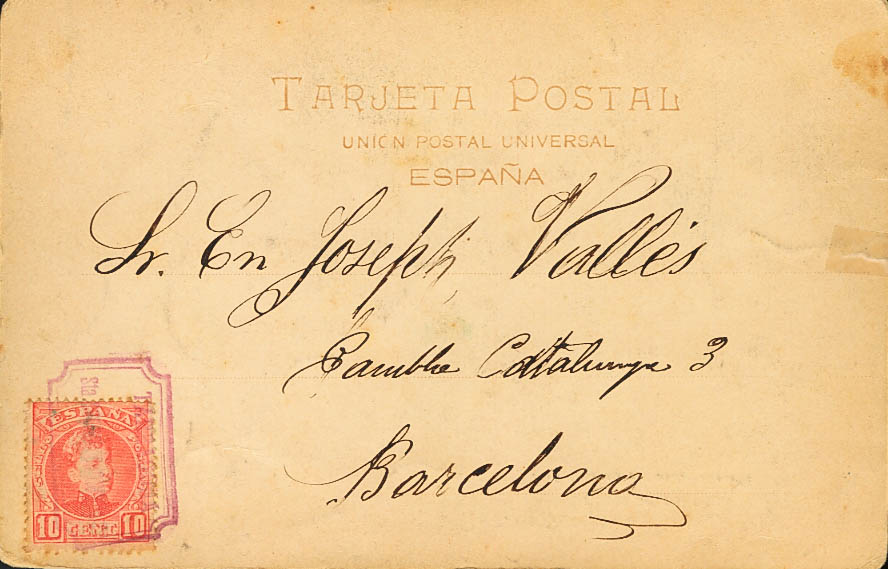 TARJETA POSTAL
UNIÓN POSTAL UNIVERSAL
ESPAÑA
Sr. En Joseph Vallés
Rambla Catalunya 3
Barcelona
ESPAÑA
10 CENT 10